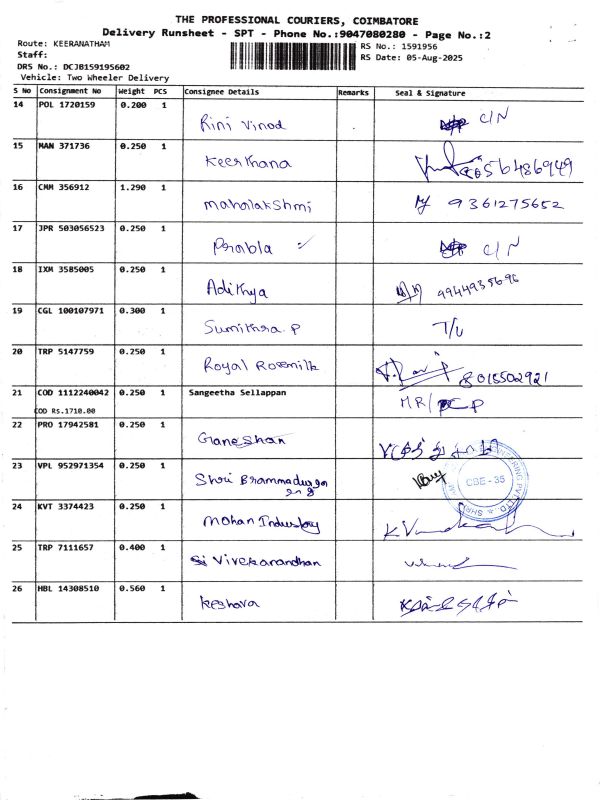 THE PROFESSIONAL COURIERS, COIMBATORE
Delivery Runsheet - SPT - Phone No.:9047080280 - Page No.:2
Route: KEERANATHAM
RS No.: 1591956
Staff:
RS Date: 05-Aug-2025
DRS No.: DCJB159195602
Vehicle: Two Wheeler Delivery
S No Consignment No Weight PCS Consignee Details Remarks Seal & Signature
14 POL 1720159 0.200 1 Rini Vinod C/N
15 MAN 371736 0.250 1 Keerthana
16 CMM 356912 1.290 1 Mahalakshmi 9361275652
17 JPR 503056523 0.250 1 C/N
18 IXM 3585005 0.250 1 Adithya 9944935696
19 CGL 100107971 0.300 1 Sumithra P
20 TRP 5147759 0.250 1 Royal Rosemilk 8015502921
21 COD 1112240042 0.250 1 Sangeetha Sellappan
COD Rs.1710.00
22 PRO 17942581 0.250 1 Ganeshan
23 VPL 952971354 0.250 1 Shri CBE-35
24 KVT 3374423 0.250 1 Mohan
25 TRP 7111657 0.400 1 Vivekanandhan
26 HBL 14308510 0.560 1 Keshava